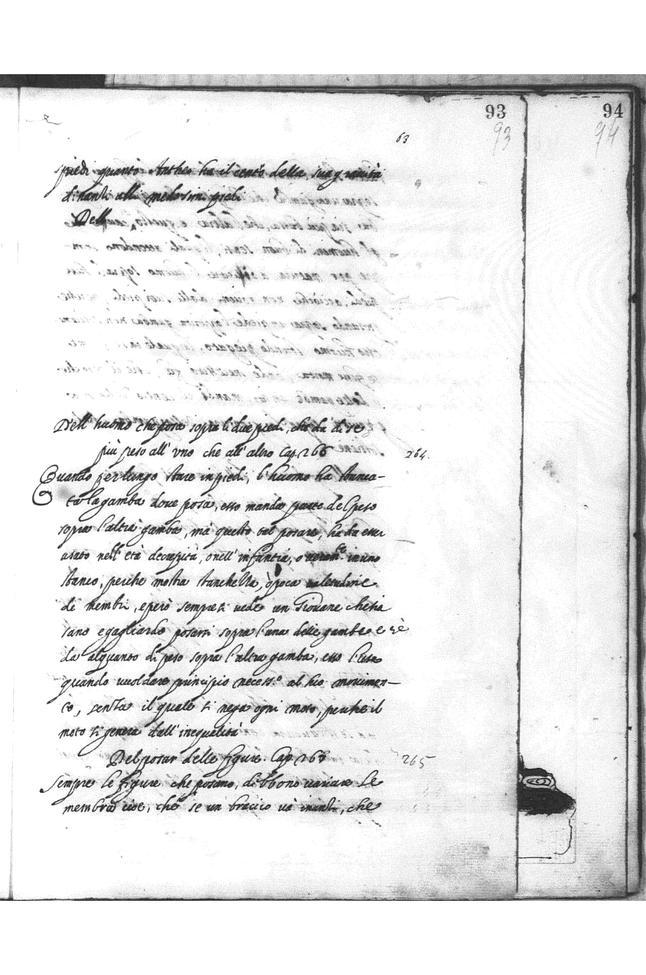 93
94
63
93
94
piedi quanto Antheo ha il cento della sua gravità
dinanti alli medesimi piedi
Dell
Dell' huomo che posa sopra li due piedi, che dà di se
più peso all' uno che all' altro Cap. 266
264
Quando per lungo stare in piedi, l' huomo ha stanca-
ta la gamba doue posa, esso manda parte del peso
sopra l' altra gamba, mà questo tal posare, ha da esser
usato nell' età decrepità, ò nell' infantia, o in uno
stanco, perche mostra stanchezza, ò poca ualetudine
de membri, e però sempre si uede un Giouane che sia
sano e gagliardo posarsi sopra l' una delle gambe e se
da alquanto di peso sopra l' altra gamba, esso l' usa
quando vuol dare principio necess.o al suo mouimen-
to, senza il quale si nega ogni moto, perche il
moto si genera dall' inequalità
Del posar delle figure. Cap. 267
265
Sempre le figure che posano, debbono uariare le
membra cioe, che se un braccio uà inanti, che